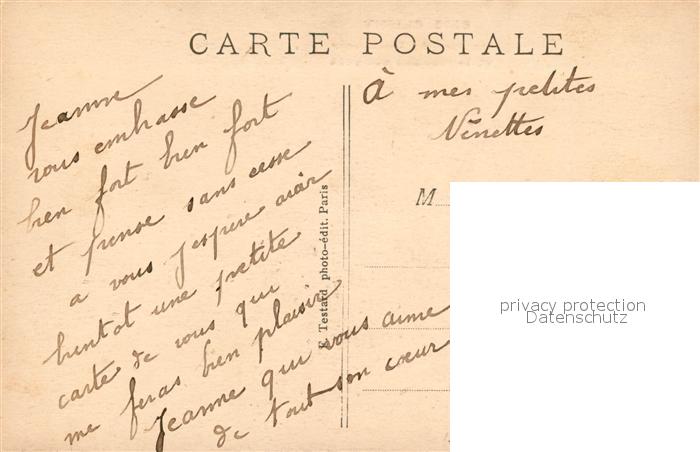 CARTE POSTALE
Jeanne
vous embrasse
bien fort bien fort
et pense sans cesse
a vous j'espere avoir
bientot une petite
carte de vous qui
me feras bien plaisir
Jeanne qui vous aime
de tout son cœur
E. Testard photo-édit. Paris
À mes petites
Nénettes
M
privacy protection
Datenschutz